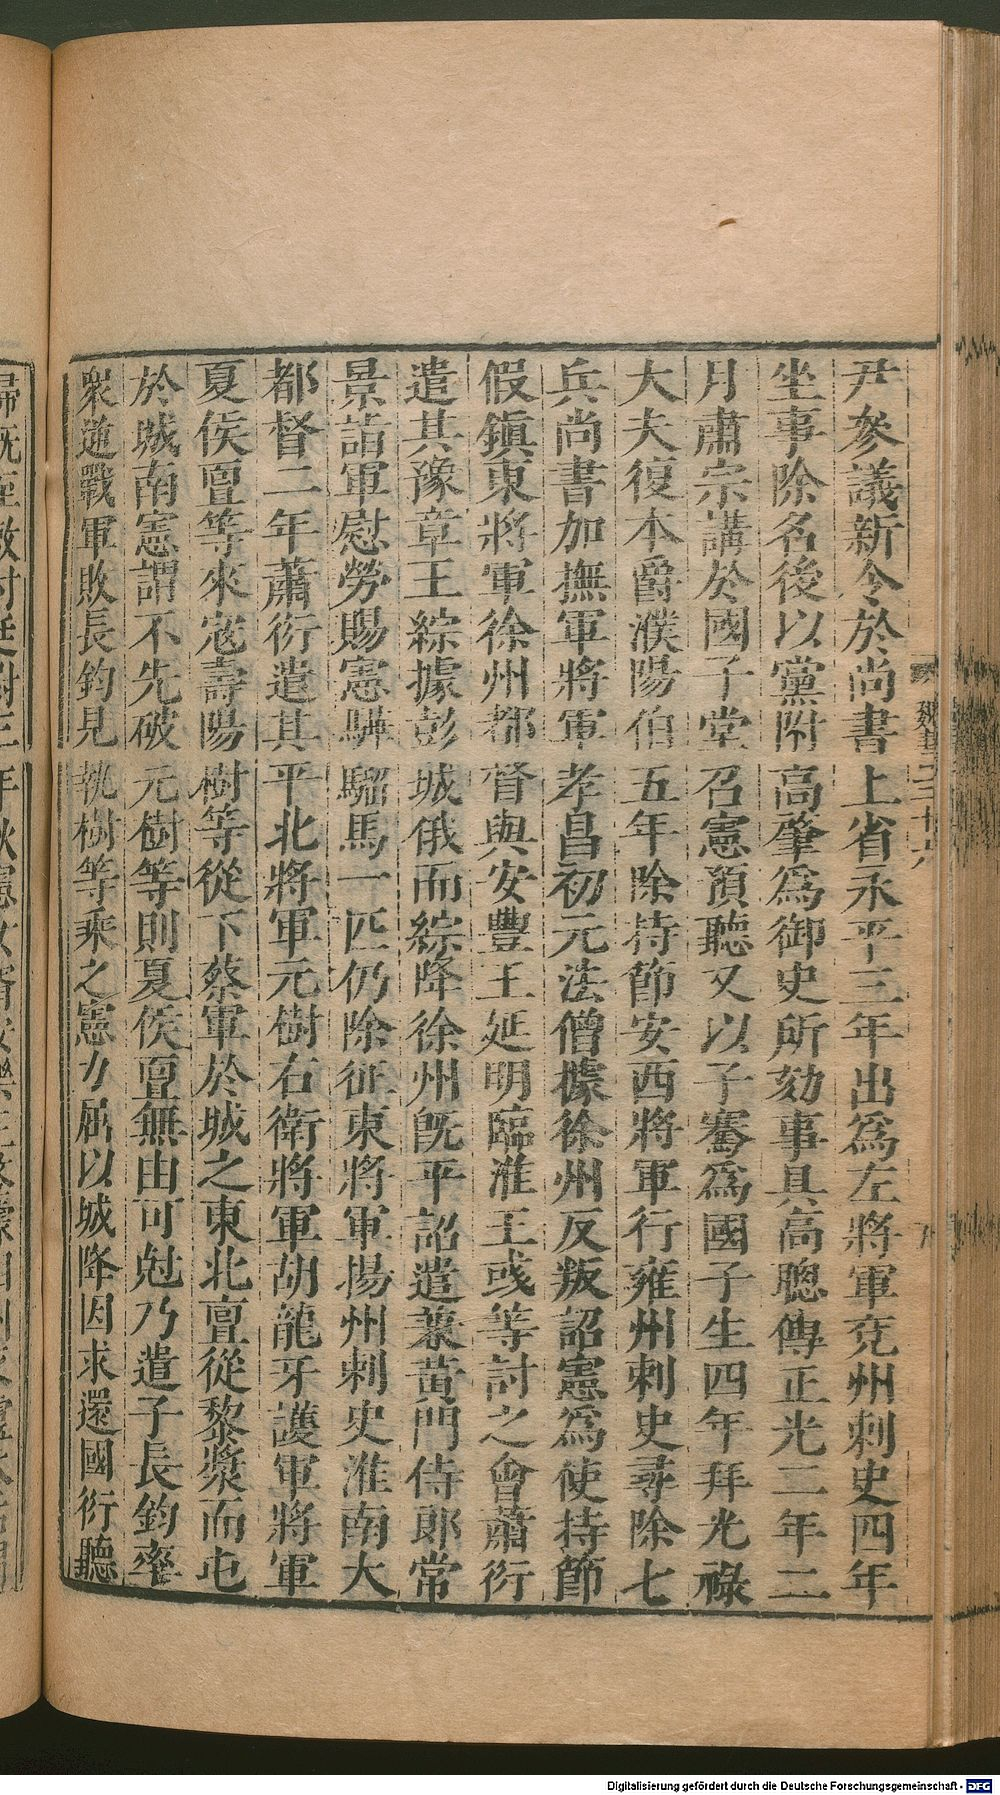 尹參議新令於尚書上省永平三年出爲左將軍兗州刺史四年
坐事除名後以黨附高肇爲御史所劾事具高聰傳正光二年二
月肅宗講於國子堂召憲預聽又以子騫爲國子生四年拜光祿
大夫復本爵濮陽伯五年除持節安西將軍行雍州刺史尋除七
兵尚書加撫軍將軍孝昌初元法僧據徐州反叛詔憲爲使持節
假鎮東將軍徐州都督與安豐王延明臨淮王彧等討之會蕭衍
遣其豫章王綜據彭城俄而綜降徐州旣平詔遣兼黃門侍郎常
景詣軍慰勞賜憲驊騮馬一匹仍除征東將軍揚州刺史淮南大
都督二年蕭衍遣其平北將軍元樹右衛將軍胡龍牙護軍將軍
夏侯亶等來寇壽陽樹等從下蔡軍於城之東北亶從黎漿而屯
於城南憲謂不先破元樹等則夏侯亶無由可尅乃遣子長鈞率
衆逆戰軍敗長鈞見執樹等乘之憲力屈以城降因求還國衍聽
Digitalisierung gefördert durch die Deutsche Forschungsgemeinschaft - DFG